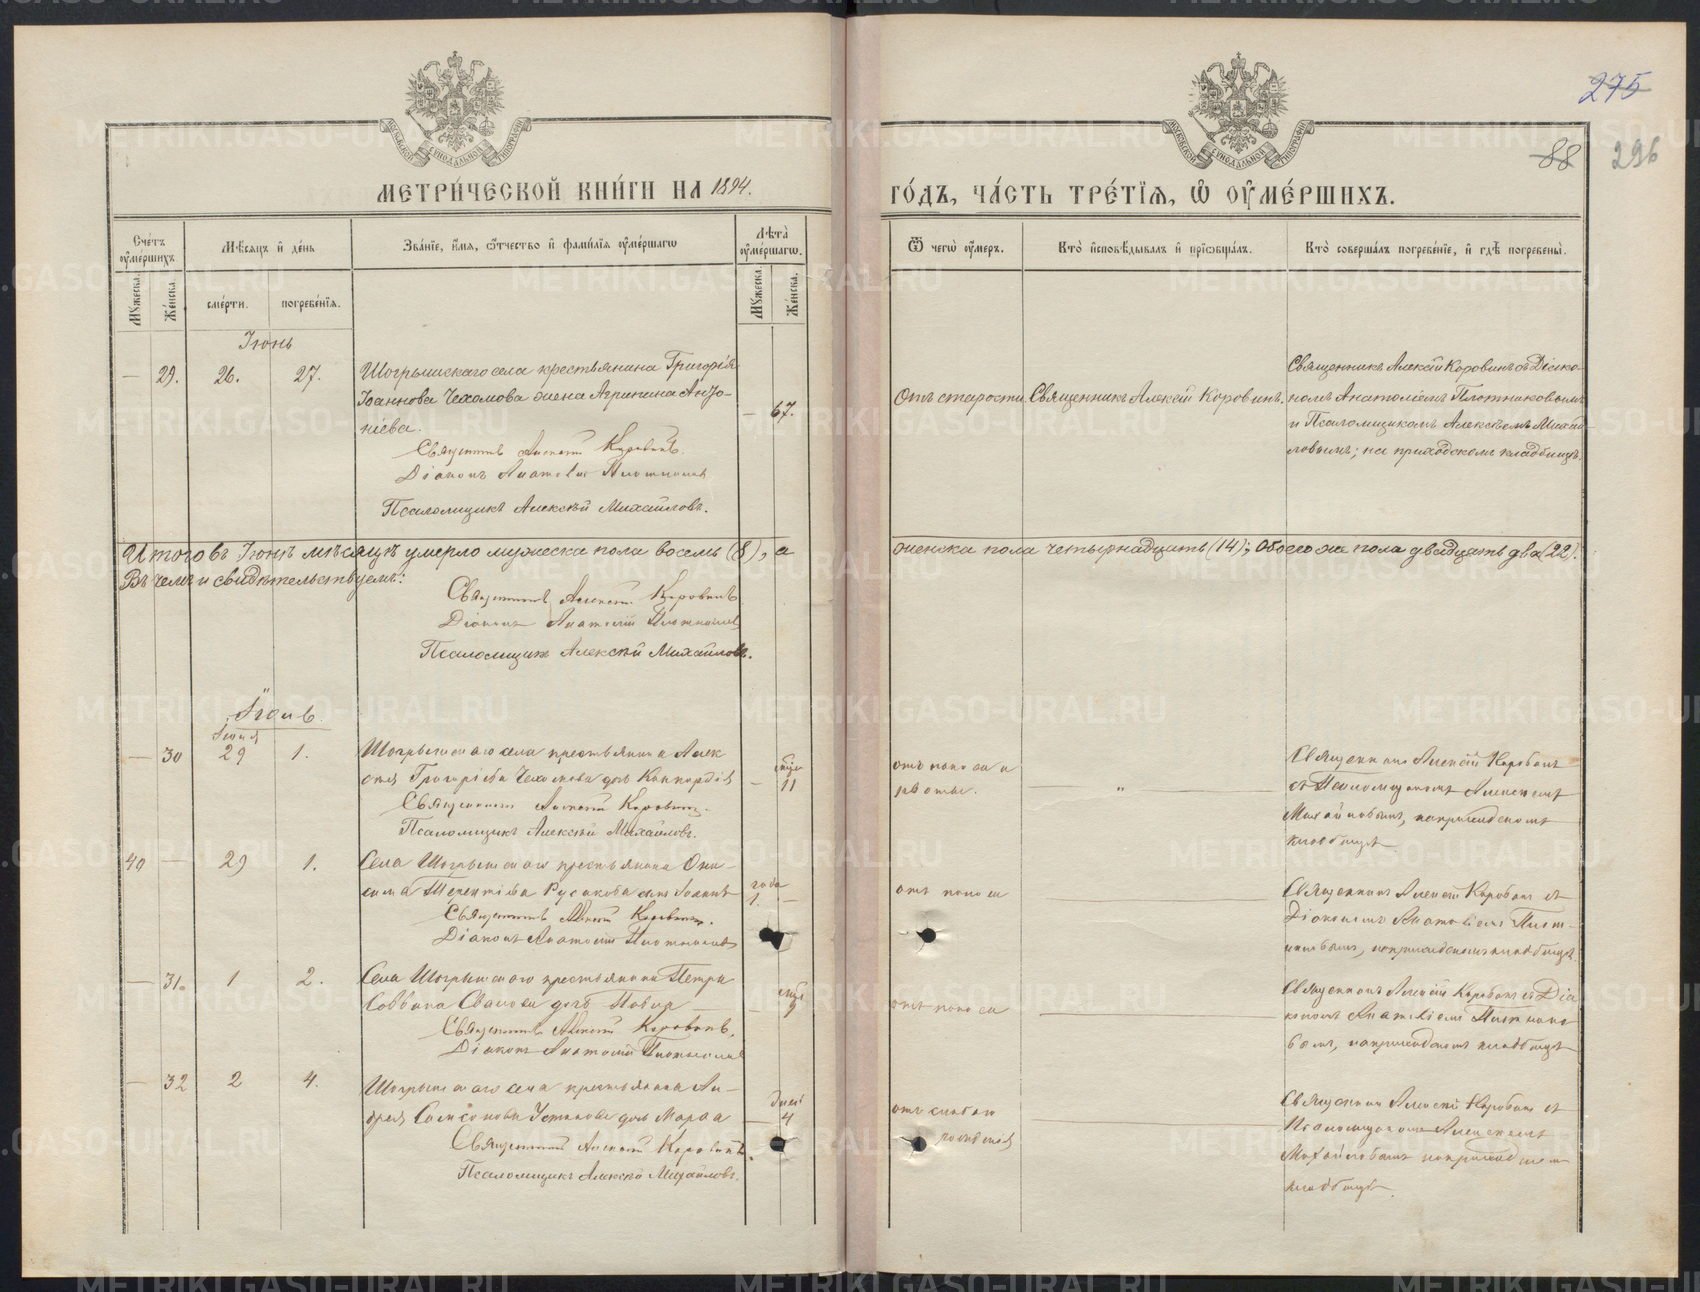 275
88 296
МОСКОВСКОЙ СѴНОДАЛЬНОЙ ТИПОГРАФІИ
МОСКОВСКОЙ СѴНОДАЛЬНОЙ ТИПОГРАФІИ
МЕТРИ́ЧЕСКОЙ КНИ́ГИ НА 1894.
ГО́ДЪ, ЧА́СТЬ ТРЕ́ТЇѦ, Ѡ҆ ОУ҆МЕ́РШИХЪ.
Сче́тъ оу҆ме́ршихъ.
Мꙋ́жеска.
Же́нска.
Мѣ́сѧцъ и҆ де́нь
сме́рти.
погребе́нїѧ.
Зва́нїе, и҆́мѧ, ѻ҆́тчество и҆ фами́лїѧ оу҆ме́ршагѡ
Лѣ́та оу҆ме́ршагѡ.
Мꙋ́жеска.
Же́нска.
Ѿ чегѡ̀ оу҆́меръ.
Кто̀ и҆сповѣ́дывалъ и҆ прїѡбща́лъ.
Кто̀ соверша́лъ погребе́нїе, и҆ гдѣ̀ погребены̀.
Іюнь
— 29. 26. 27.
Шогрышскаго села крестьянина Григорія
Іоаннова Чехомова жена Агрипина Анѳо-
ніева.
— 67.
Священникъ Алексій Коровинъ.
Діаконъ Анатолій Плотниковъ
Псаломщикъ Алексѣй Михайловъ.
Отъ старости.
Священникъ Алексій Коровинъ.
Священникъ Алексій Коровинъ съ Діако-
номъ Анатоліемъ Плотниковымъ
и Псаломщикомъ Алексѣемъ Михай
ловымъ; на приходскомъ кладбищѣ.
Итого въ Іюнѣ мѣсяцѣ умерло мужеска пола восемь (8), а
женска пола четырнадцать (14); обоего же пола двадцать два (22).
Въ чемъ и свидѣтельствуемъ:
Священникъ Алексій Коровинъ
Діаконъ Анатолій Плотниковъ
Псаломщикъ Алексѣй Михайловъ.
Іюль.
Іюня
— 30 29 1.
Шогрышскаго села крестьянина Алек
сѣя Григоріева Чехомова дочь Конкордія
мѣся
— 11
Священникъ Алексій Коровинъ.
Псаломщикъ Алексѣй Михайловъ.
отъ поноса и
рвоты.
"
Священникъ Алексій Коровинъ
съ Псаломщикомъ Алексѣемъ
Михайловымъ, на приходскомъ
кладбищѣ
40 — 29 1.
Села Шогрышскаго крестьянина Они-
сима Терентіева Русакова сынъ Іоаннъ
года
1. —
Священникъ Алексій Коровинъ.
Діаконъ Анатолій Плотниковъ
отъ поноса
Священникъ Алексій Коровинъ съ
Діакономъ Анатоліемъ Плот-
никовымъ, на приходскомъ кладбищѣ
— 31. 1 2.
Села Шогрышскаго крестьянина Петра
дочь
9
Священникъ Алексій Коровинъ.
Діаконъ Анатолій Плотниковъ
отъ поноса
Священникъ Алексій Коровинъ съ Діа
кономъ Анатоліемъ Плотнико
вымъ, на приходскомъ кладбищѣ
— 32 2 4.
Шогрышскаго села крестьянина Ан-
дрея Самсонова Устинова дочь Марѳа
дней
— 4
Священникъ Алексій Коровинъ.
Псаломщикъ Алексѣй Михайловъ.
отъ слабаго
рожденія
Священникъ Алексій Коровинъ съ
Псаломщикомъ Алексѣемъ
Михайловымъ на приходскомъ
кладбищѣ.
METRIKI.GASO-URAL.RU